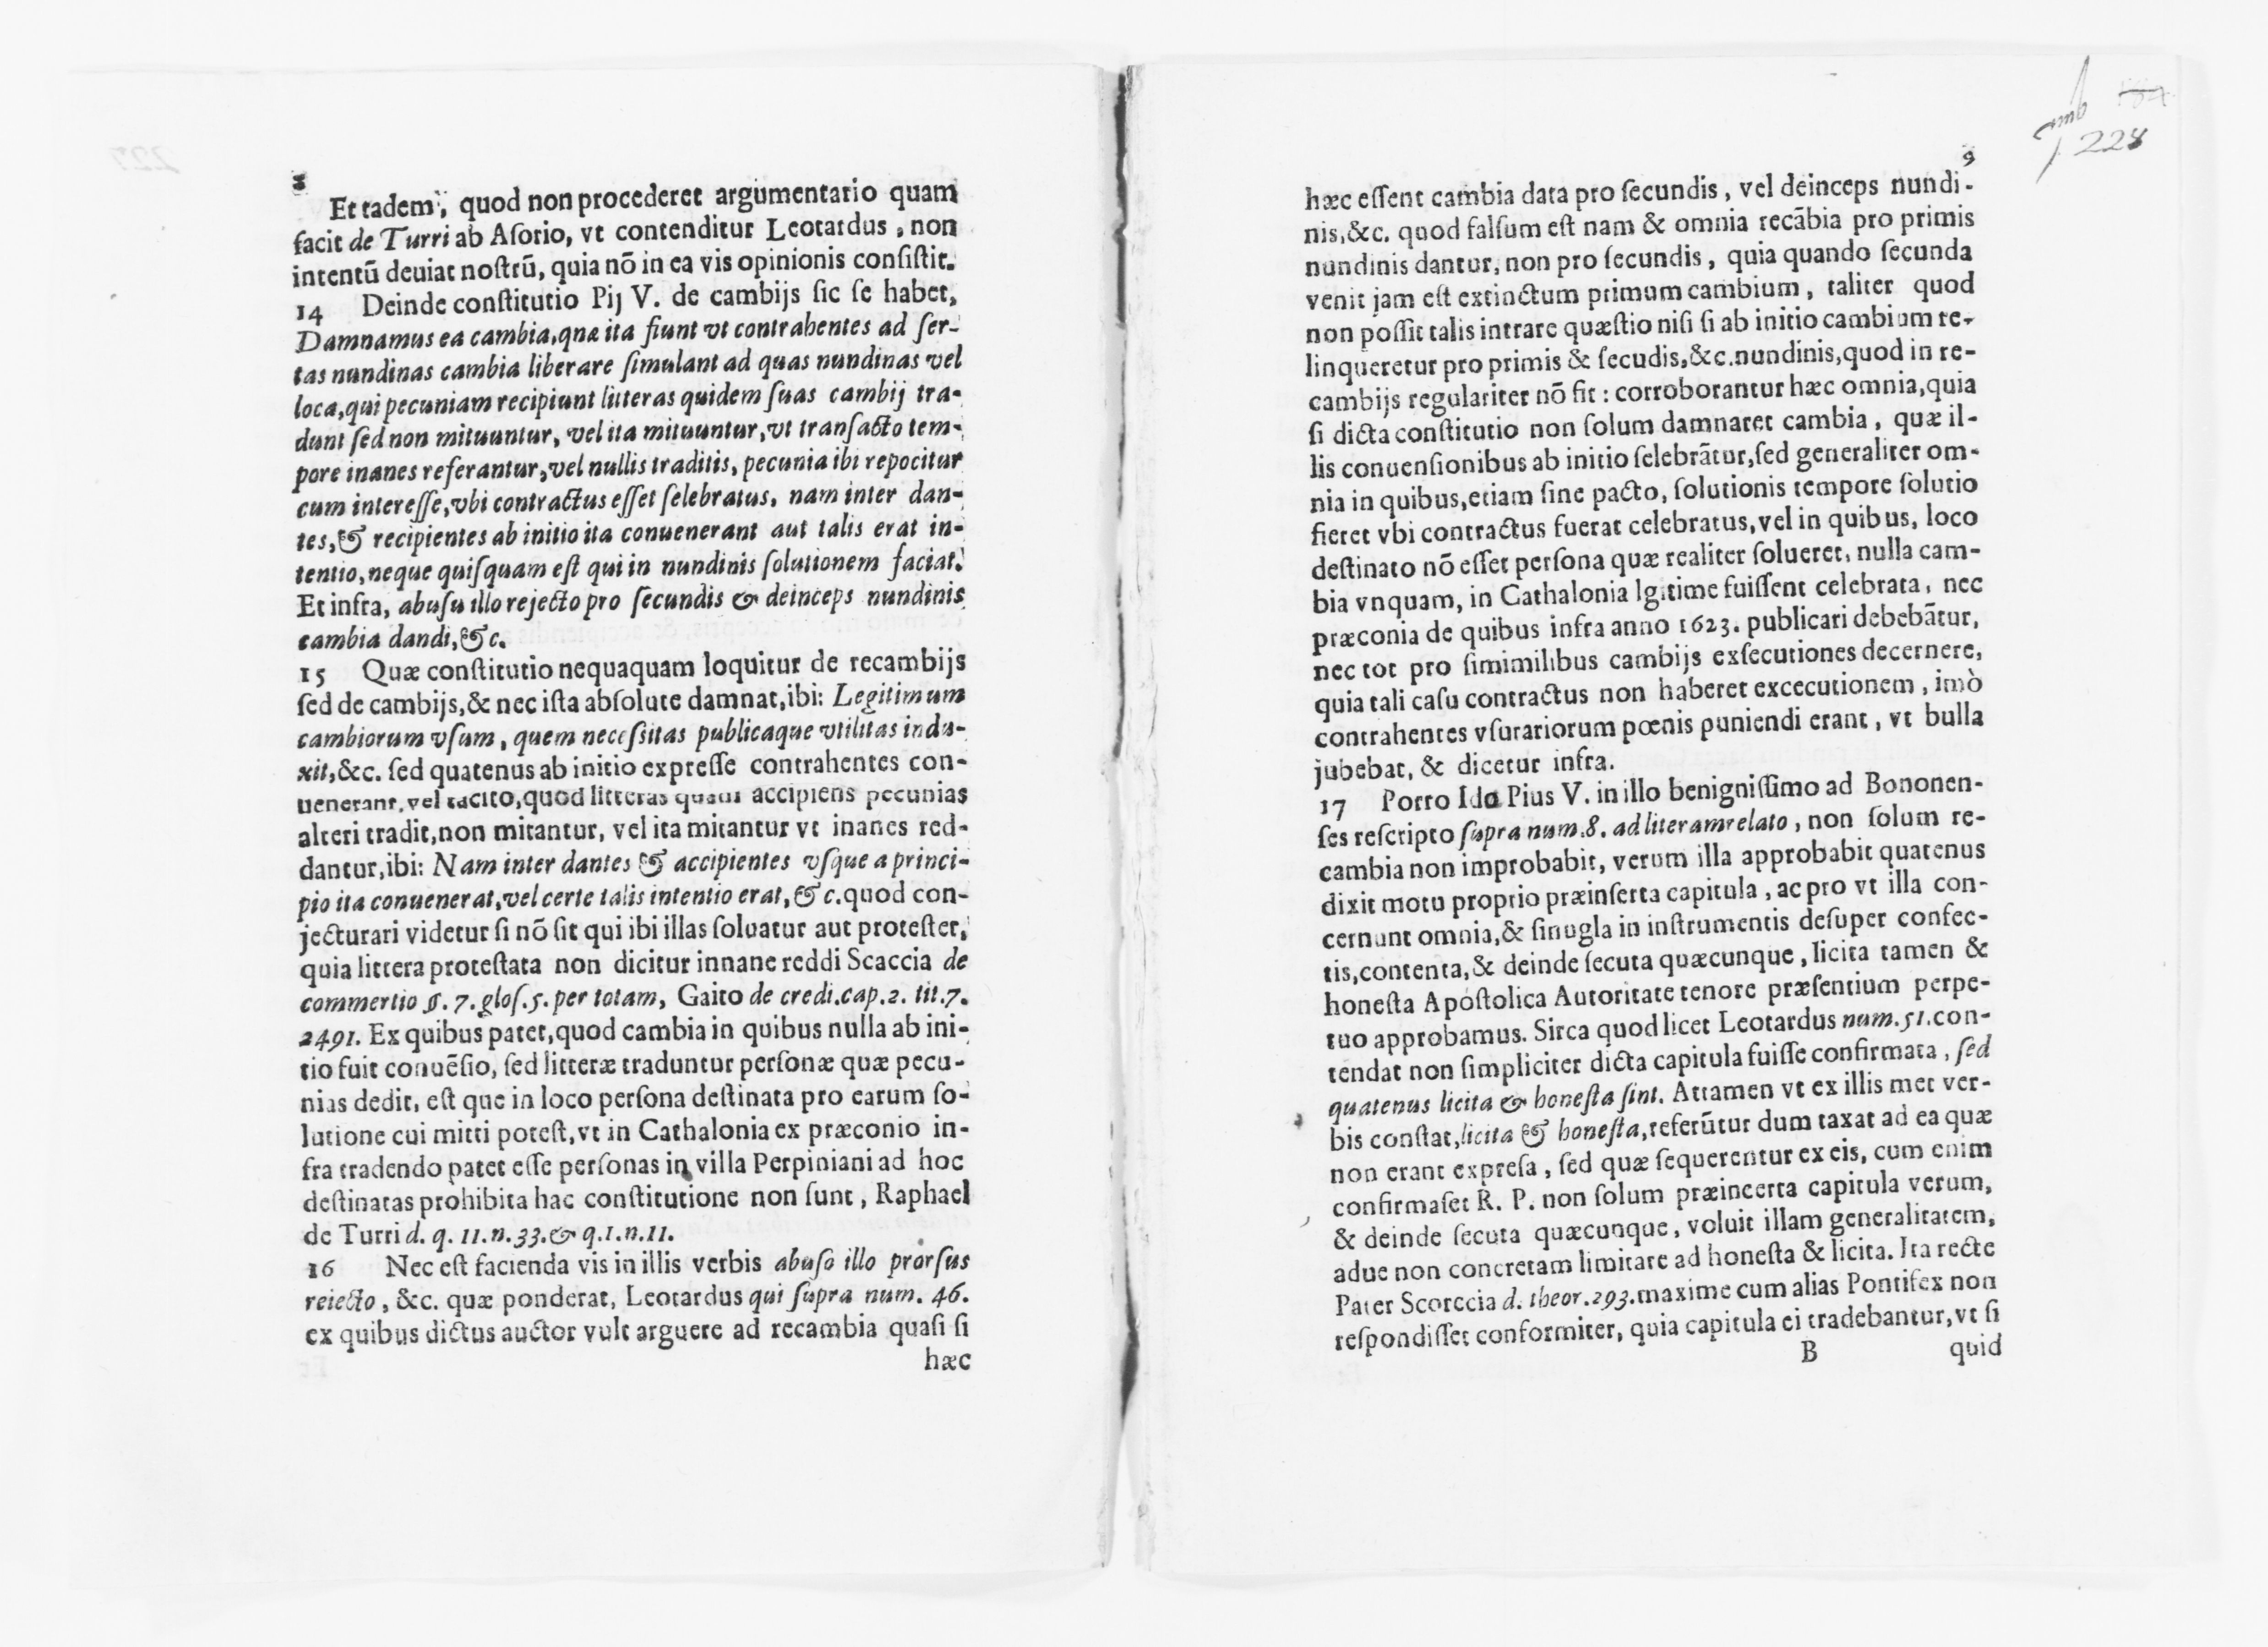 8
Et tadem, quod non procederet argumentatio quam
facit de Turri ab Asorio, vt contenditur Leotardus, non
intentū deuiat nostrū, quia nō in ea vis opinionis consistit.
14 Deinde constitutio Pij V. de cambijs sic se habet,
Damnamus ea cambia, quæ ita fiunt vt contrahentes ad ser-
tas nundinas cambia liberare simulant ad quas nundinas vel
loca, qui pecuniam recipiunt litteras quidem suas cambij tra-
dunt sed non mituuntur, vel ita mituuntur, vt transacto tem-
pore inanes referantur, vel nullis traditis, pecunia ibi repocitur
cum interesse, vbi contractus esset selebratus, nam inter dan-
tes, & recipientes ab initio ita conuenerant aut talis erat in-
tentio, neque quisquam est qui in nundinis solutionem faciat.
Et infra, abusu illo rejecto pro secundis & deinceps nundinis
cambia dandi, &c.
15 Quæ constitutio nequaquam loquitur de recambijs
sed de cambijs, & nec ista absolute damnat, ibi: Legitimum
cambiorum vsum, quem necessitas publicaque vtilitas indu-
xit, &c. sed quatenus ab initio expresse contrahentes con-
uenerant, vel tacito, quod litteras quam accipiens pecunias
alteri tradit, non mitantur, vel ita mitantur vt inanes red-
dantur, ibi: Nam inter dantes & accipientes vsque a princi-
pio ita conuenerat, vel certe talis intentio erat, &c. quod con-
jecturari videtur si nō sit qui ibi illas soluatur aut protester,
quia littera protestata non dicitur innane reddi Scaccia de
commertio §. 7. glos. 5. per totam, Gaito de credi. cap. 2. tit. 7.
2491. Ex quibus patet, quod cambia in quibus nulla ab ini-
tio fuit conuēsio, sed litteræ traduntur personæ quæ pecu-
nias dedit, est que in loco persona destinata pro earum so-
lutione cui mitti potest, vt in Cathalonia ex præconio in-
fra tradendo patet esse personas in villa Perpiniani ad hoc
destinatas prohibita hac constitutione non sunt, Raphael
de Turri d. q. 11. n. 33. & q. 1. n. 11.
16 Nec est facienda vis in illis verbis abuso illo prorsus
reiecto, &c. quæ ponderat, Leotardus qui supra num. 46.
ex quibus dictus auctor vult arguere ad recambia quasi si
hæc
228
9
hæc essent cambia data pro secundis, vel deinceps nundi-
nis, &c. quod falsum est nam & omnia recābia pro primis
nundinis dantur, non pro secundis, quia quando secunda
venit jam est extinctum primum cambium, taliter quod
non possit talis intrare quæstio nisi si ab initio cambium re-
linqueretur pro primis & secudis, &c. nundinis, quod in re-
cambijs regulariter nō fit: corroborantur hæc omnia, quia
si dicta constitutio non solum damnaret cambia, quæ il-
lis conuensionibus ab initio selebrātur, sed generaliter om-
nia in quibus, etiam sine pacto, solutionis tempore solutio
fieret vbi contractus fuerat celebratus, vel in quibus, loco
destinato nō esset persona quæ realiter solueret, nulla cam-
bia vnquam, in Cathalonia lgitime fuissent celebrata, nec
præconia de quibus infra anno 1623. publicari debebātur,
nec tot pro simimilibus cambijs exsecutiones decernere,
quia tali casu contractus non haberet excecutionem, imò
contrahentes vsurariorum pœnis puniendi erant, vt bulla
jubebat, & dicetur infra.
17 Porro Ido Pius V. in illo benignissimo ad Bononen-
ses rescripto supra num. 8. ad literam relato, non solum re-
cambia non improbabit, verum illa approbabit quatenus
dixit motu proprio præinserta capitula, ac pro vt illa con-
cernunt omnia, & sinugla in instrumentis desuper confec-
tis, contenta, & deinde secuta quæcunque, licita tamen &
honesta Apostolica Autoritate tenore præsentium perpe-
tuo approbamus. Sirca quod licet Leotardus num. 51. con-
tendat non simpliciter dicta capitula fuisse confirmata, sed
quatenus licita & honesta sint. Attamen vt ex illis met ver-
bis constat, licita & honesta, referūtur dum taxat ad ea quæ
non erant expresa, sed quæ sequerentur ex eis, cum enim
confirmaset R. P. non solum præincerta capitula verum,
& deinde secuta quæcunque, voluit illam generalitatem,
adue non concretam limitare ad honesta & licita. Ita recte
Pater Scorccia d. theor. 293. maxime cum alias Pontifex non
respondisset conformiter, quia capitula ei tradebantur, vt si
B quid